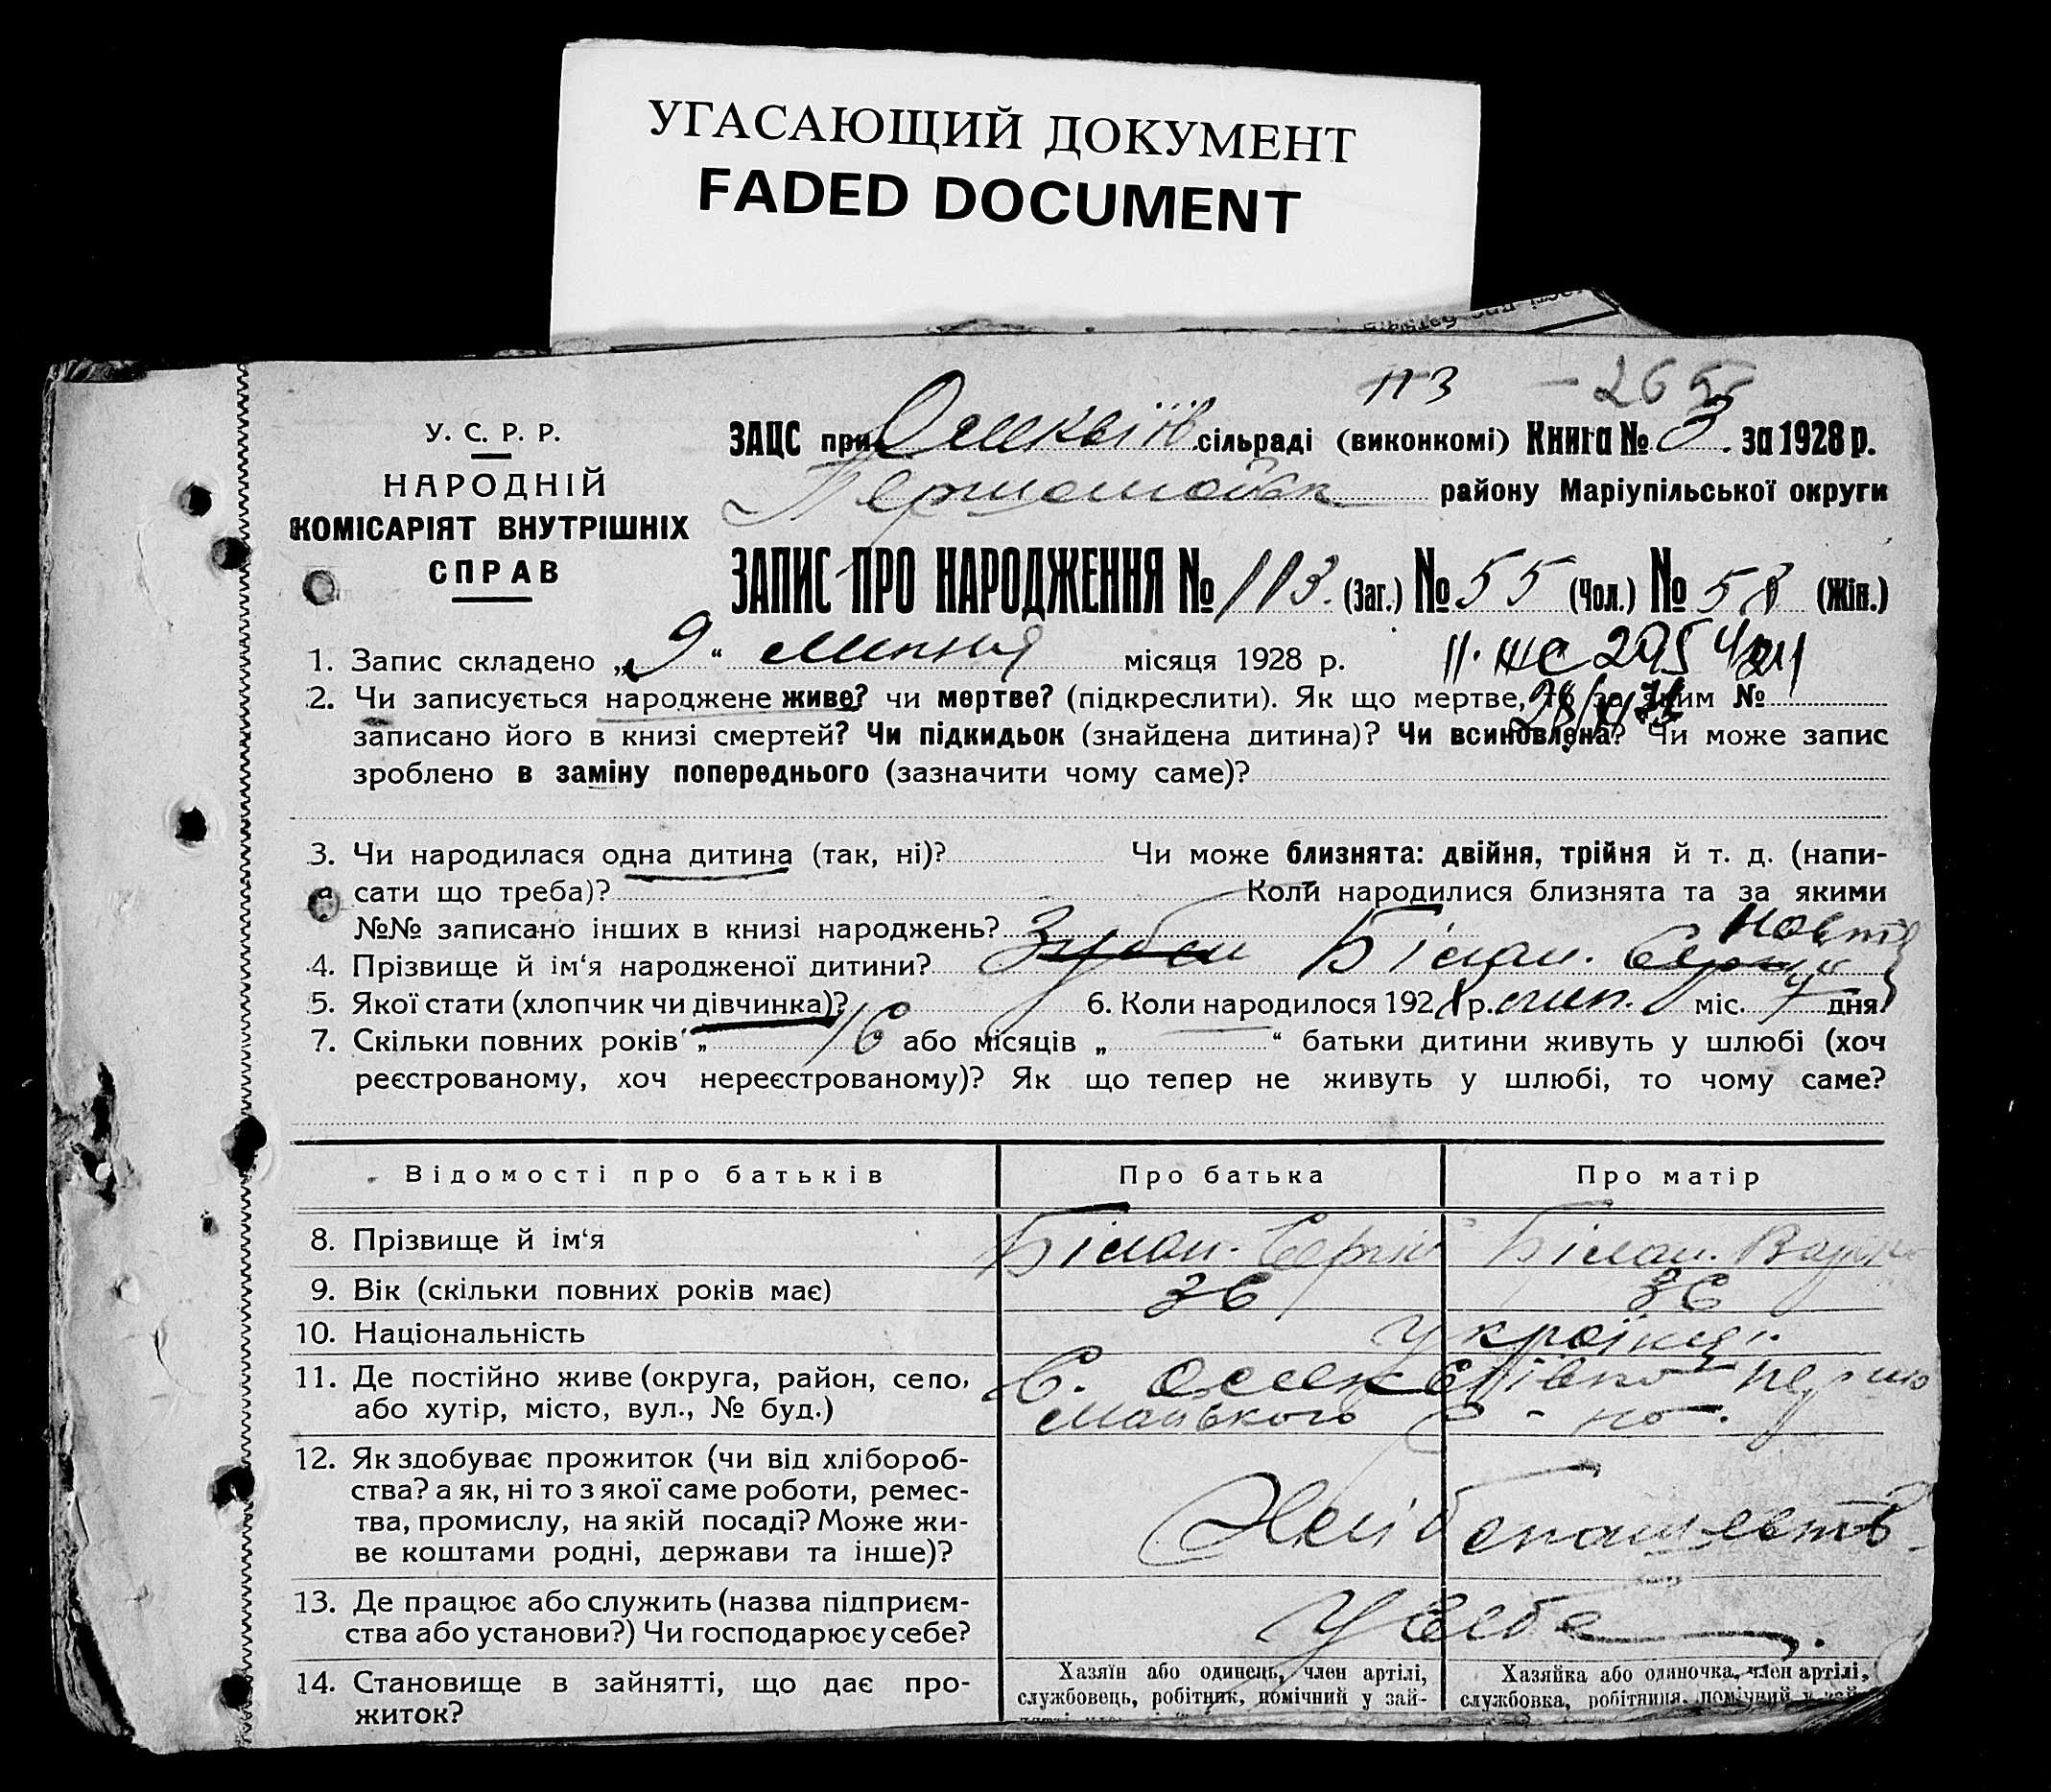 УГАСАЮЩИЙ ДОКУМЕНТ
FADED DOCUMENT
113 – 265
У. С. Р. Р.
НАРОДНІЙ
КОМІСАРІЯТ ВНУТРІШНІХ
СПРАВ
ЗАЦС при сільраді (виконкомі) Книга № 3. за 1928 р.
Першомайськ району Маріупільської округи
ЗАПИС ПРО НАРОДЖЕННЯ № 113. (Заг.) № 55 (Чол.) № 58 (Жін.)
1. Запис складено „9“ липня місяця 1928 р.
2. Чи записується народжене живе? чи мертве? (підкреслити). Як що мертве, то за яким №
записано його в книзі смертей? Чи підкидьок (знайдена дитина)? Чи всиновлена? Чи може запис
зроблено в заміну попереднього (зазначити чому саме)?
3. Чи народилася одна дитина (так, ні)? Чи може близнята: двійня, трійня й т. д. (напи-
сати що треба)? Коли народилися близнята та за якими
№№ записано інших в книзі народжень?
4. Прізвище й ім‘я народженої дитини? Білан.
5. Якої стати (хлопчик чи дівчинка)? 6. Коли народилось 1928 р. лип. міс. 7 дня
7. Скільки повних років „ 16 або місяців „ “ батьки дитини живуть у шлюбі (хоч
реєстрованому, хоч нереєстрованому)? Як що тепер не живуть у шлюбі, то чому саме?
Відомості про батьків Про батька Про матір
8. Прізвище й ім‘я Білан. Сергій Білан.
9. Вік (скільки повних років має) 36 36
10. Національність Українці.
11. Де постійно живе (округа, район, село, С. Олексіївка Першо
або хутір, місто, вул., № буд.) майського р-на.
12. Як здобуває прожиток (чи від хлібороб-
ства? а як, ні то з якої саме роботи, ремес-
тва, промислу, на якій посаді? Може жи-
ве коштами родні, держави та інше)?
13. Де працює або служить (назва підприєм-
ства або установи?) Чи господарює у себе? У себе.
14. Становище в зайнятті, що дає про-
житок?
Хазяїн або одинець, член артілі,
службовець, робітник, помічний у зай-
Хазяйка або одиночка, член артілі,
службовка, робітниця, помічний у зай-